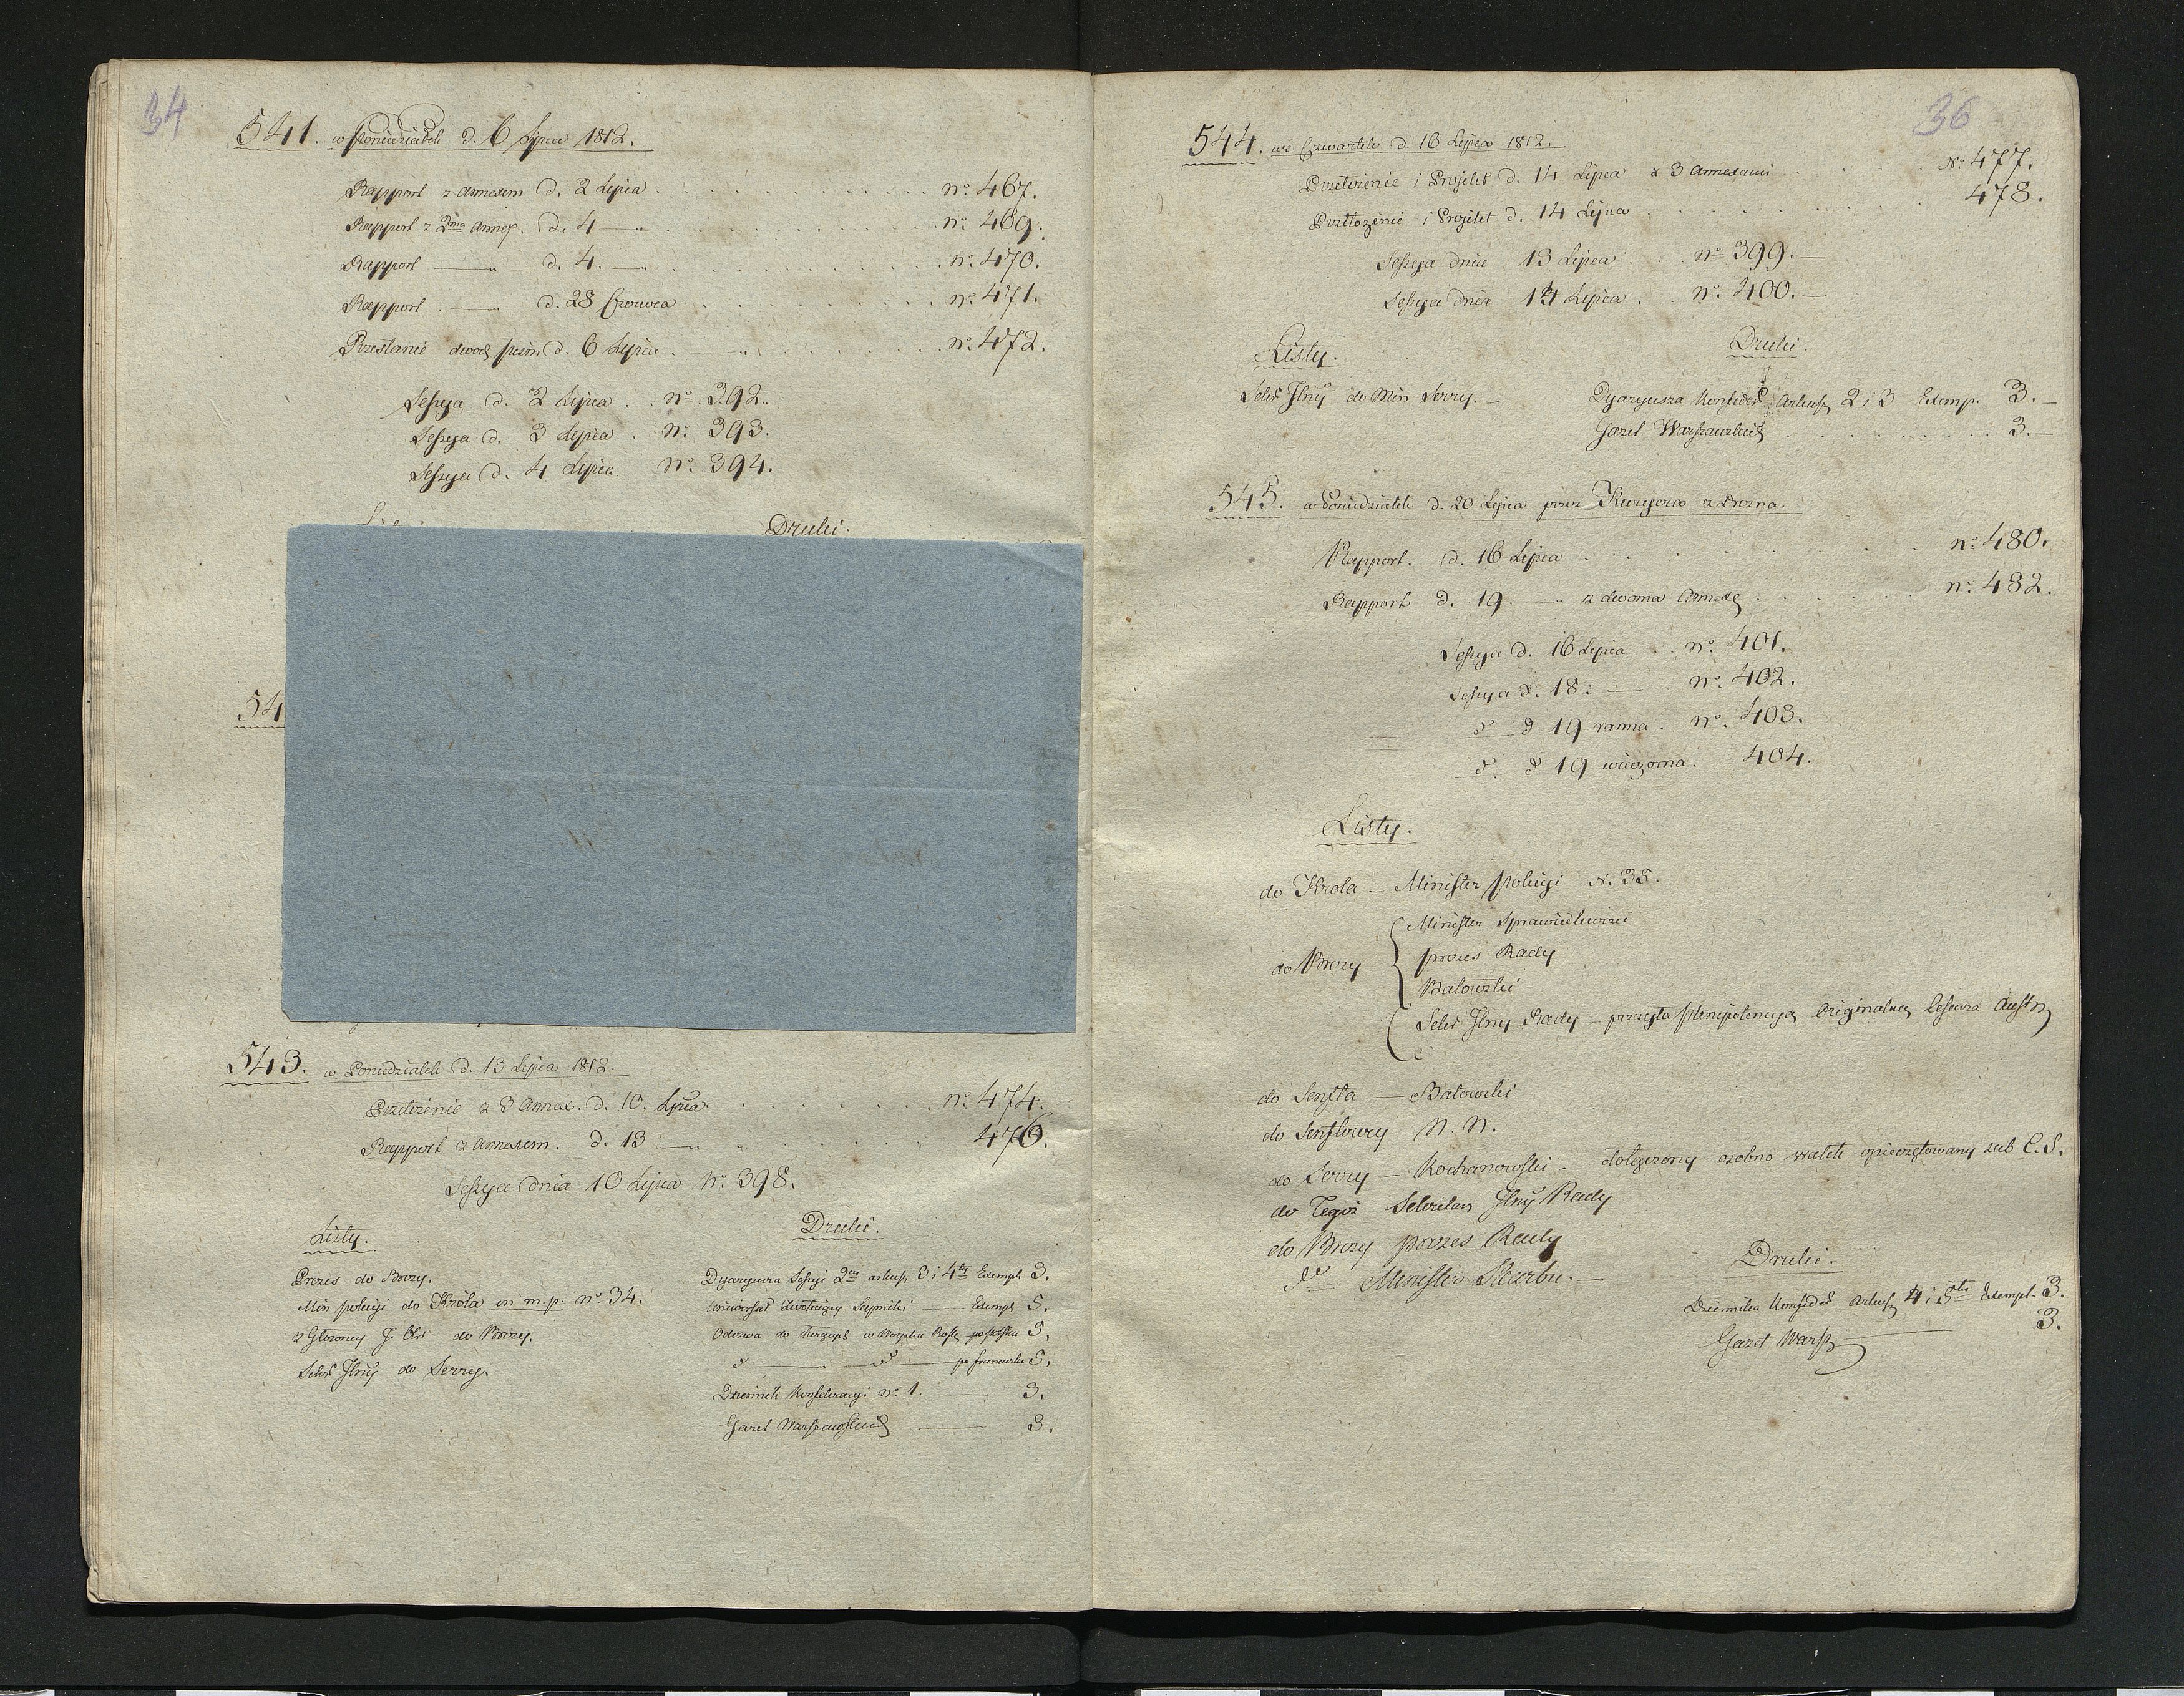 34
541. w Poniedziałek d. 6 Lipca 1812.
Rapport z annexem d. 2 Lipca . . . nº 467.
Rapport z 2ma annex. d. 4 — . . . nº 469.
Rapport — d. 4. — . . . nº 470.
Rapport — d. 28 Czerwca . . . nº 471.
Przesłanie dwóch pism d. 6 Lipca . . . nº 472.
Sessya d. 2 Lipca . . nº 392.
Sessya d. 3 Lipca . nº 393.
Sessya d. 4 Lipca nº 394.
Druki.
54
543. w Poniedziałek d. 13 Lipca 1812.
Przełożenie z 3 annex. d. 10. Lipca . . . nº 474.
Rapport z annexem. d. 13 — . . . 476.
Sessya dnia 10 Lipca Nº 398.
Listy.
Prezes do Brezy.
Min policyi do Króla in m. p. nº 34.
z Głowney J. do Brezy.
Sekr Jlny do Serry.
Druki.
Dyaryusza Sessyi 2 arkusz 3 i 4ty Exempl. 3.
Uniwersał Zwołuiący Seymiki — Exempl 5.
Odezwa do w Woysku Ross po polsku 5.
dº — dº — po francusku 5.
Dziennik Konfederacyi nº 1. — 3.
Gazet Warszawskich — 3.
36
544. we Czwartek d. 16 Lipca 1812.
Przełożenie i Projekt d. 14 Lipca z 3 annexami . . . Nº 477.
Przełożenie i Projekt d. 14 Lipca . . . 478.
Sessya dnia 13 Lipca . . nº 399. —
Sessya dnia 14 Lipca . . nº 400. —
Listy.
Sekr Jlny do Min Serry. —
Druki.
Dyaryusza Konfeder Arkusz 2 i 3 Exemp. 3. —
Gazet Warszawskich . . . 3. —
545. w Poniedziałek d. 20 Lipca przez Kuryera z Drezna.
Rapport. d. 16 Lipca . . . nº 480.
Rapport d. 19. — z dwoma Annexa . . . nº 482.
Sessya d. 16 Lipca . . nº 401.
Sessya d. 18. — nº 402.
dº d 19 ranna . nº 403.
dº d 19 wieczorna . 404.
Listy.
do Krola — Minister policyi N. 35.
do Brezy
Minister Sprawiedliwości
prezes Rady
Batowski
Sekr Jlny Rady — przesyła plenipotencyą Originalną Cesarza Austr
do Senfta — Batowski
do Senftowey N. N.
do Serry — Kochanowski — dołączony osobno opieczętowany sub C. S.
do Tegoż Sekretarz Jlny Rady
do Brezy prezes Rady
dº Minister Skarbu. —
Druki.
Dziennika Konfeder Arkusz 4 i 5ty Exempl. 3.
Gazet Warsz — 3.